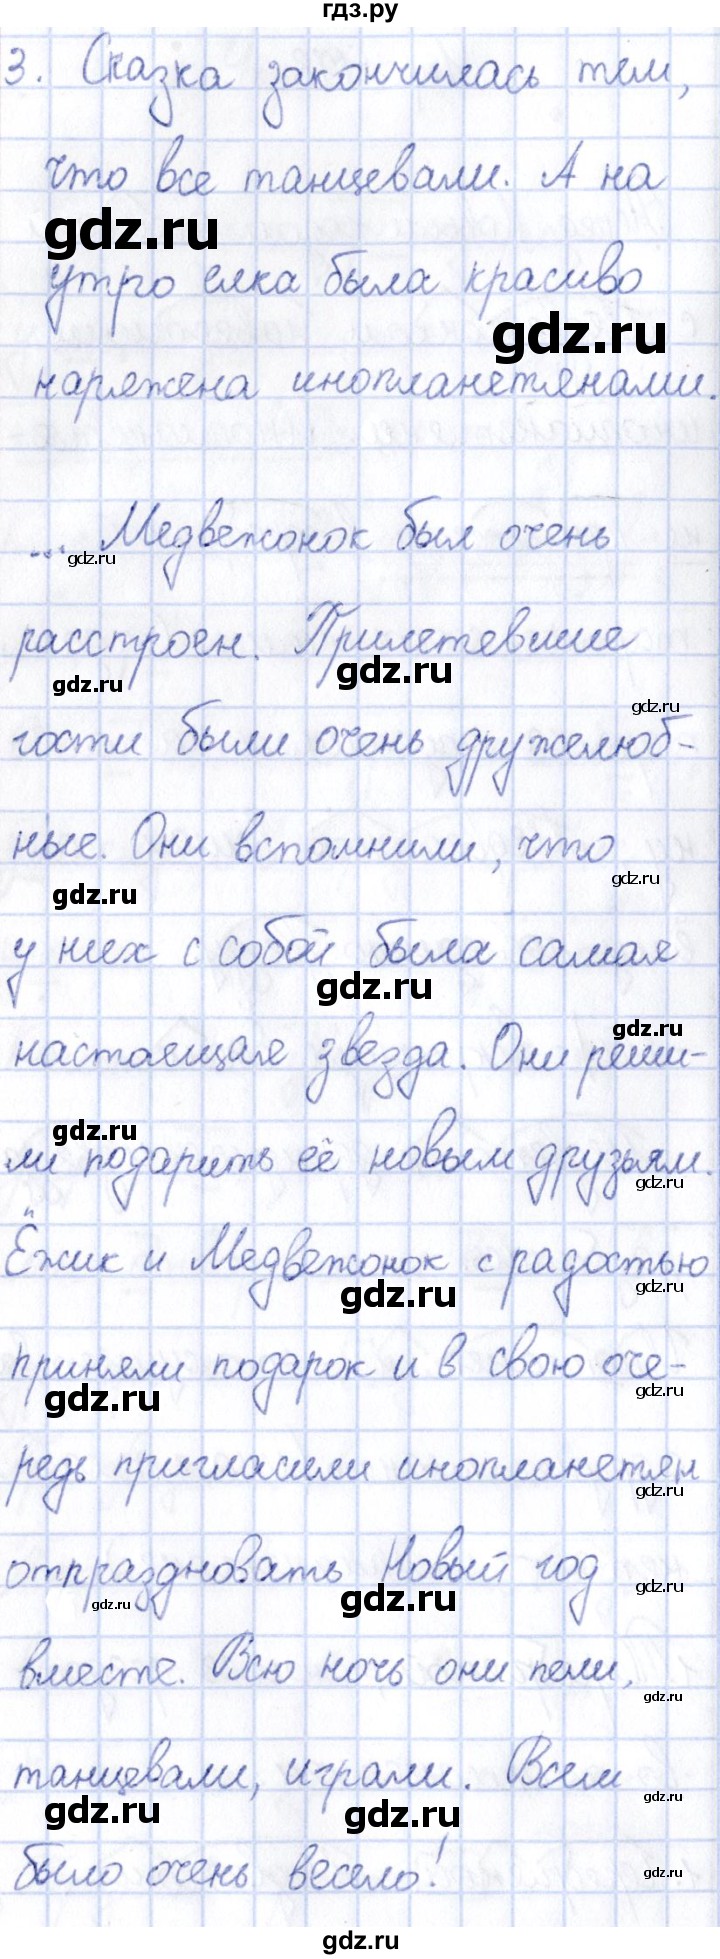 гдз.ру
3. Сказка закончилась тем,
что все танцевали. А на
gdz.ru
утро елка была красиво
gdz.ru
наряжена инопланетянами.
... Медвежонок был очень
gdz.ru
расстроен. Прилетевшие
gdz.ru
gdz.ru
gdz.ru
гости были очень дружелюб-
ные. Они вспомнили, что
gdz.ru
gdz.ru
у них с собой была самая
gdz.ru
настоящая звезда. Они реши-
gdz.ru
gdz.ru
ли подарить её новым друзьям.
gdz.ru
Ёжик и Медвежонок с радостью
gdz.ru
gdz.ru
приняли подарок и в свою оче-
gdz.ru
gdz.ru
редь пригласили инопланетян
gdz.ru
отпраздновать Новый год
gdz.ru
gdz.ru
gdz.ru
вместе. Всю ночь они пели,
gdz.ru
танцевали, играли. Всем
gdz.ru
gdz.ru
gdz.ru
было очень весело!
gdz.ru
gdz.ru